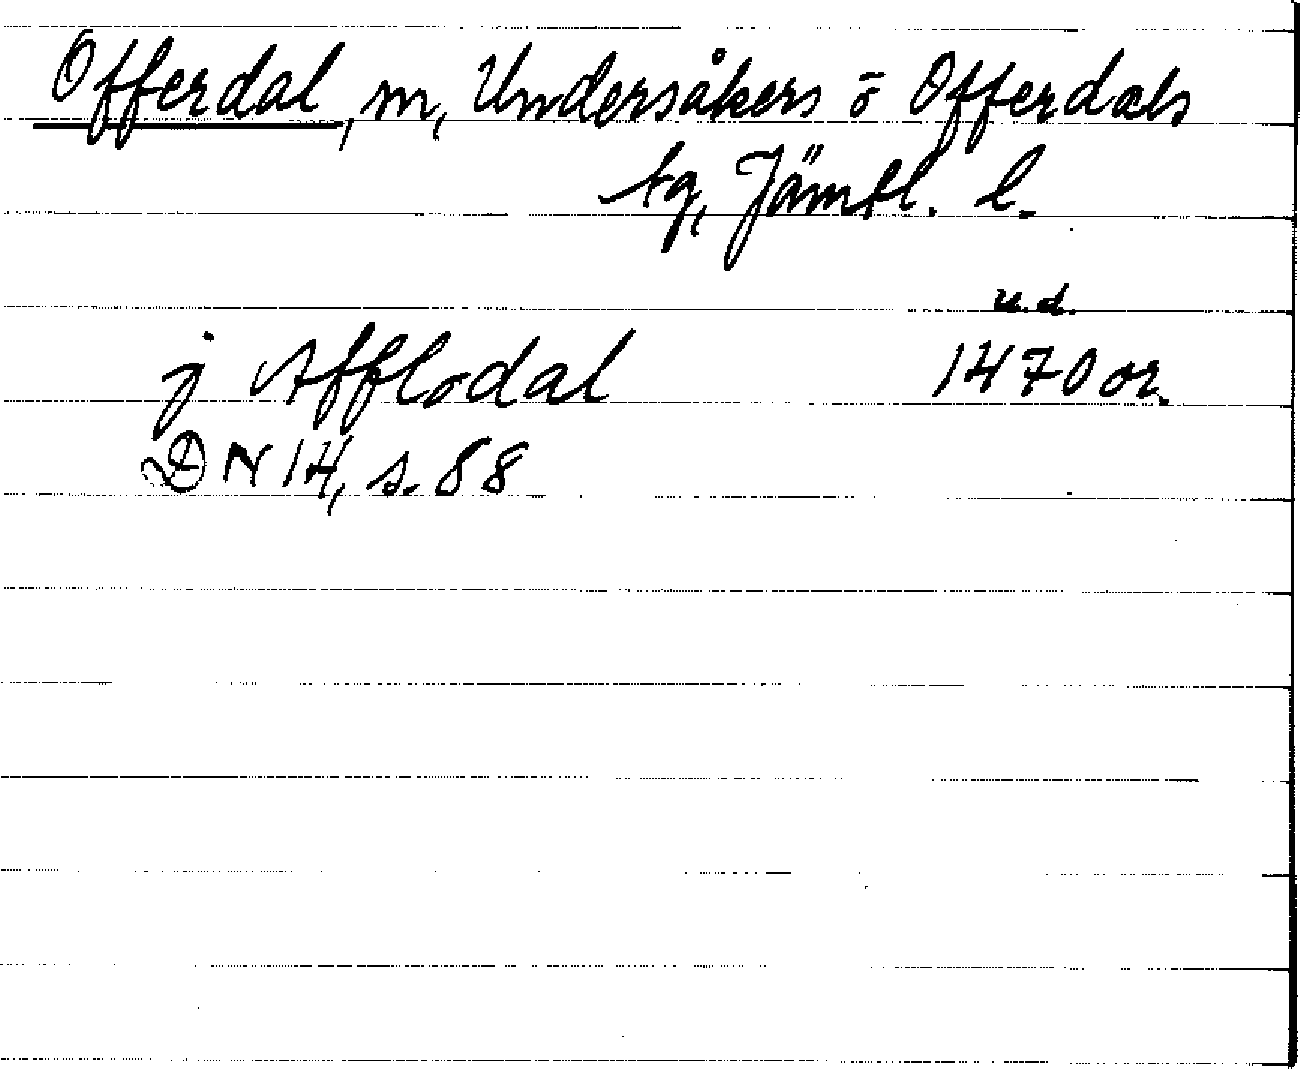 Offerdal, m, Undersåkers o Offerdals
tg, Jämtl. l.
u.d.
j Afflodal 1470 or.
DN 14, s. 88